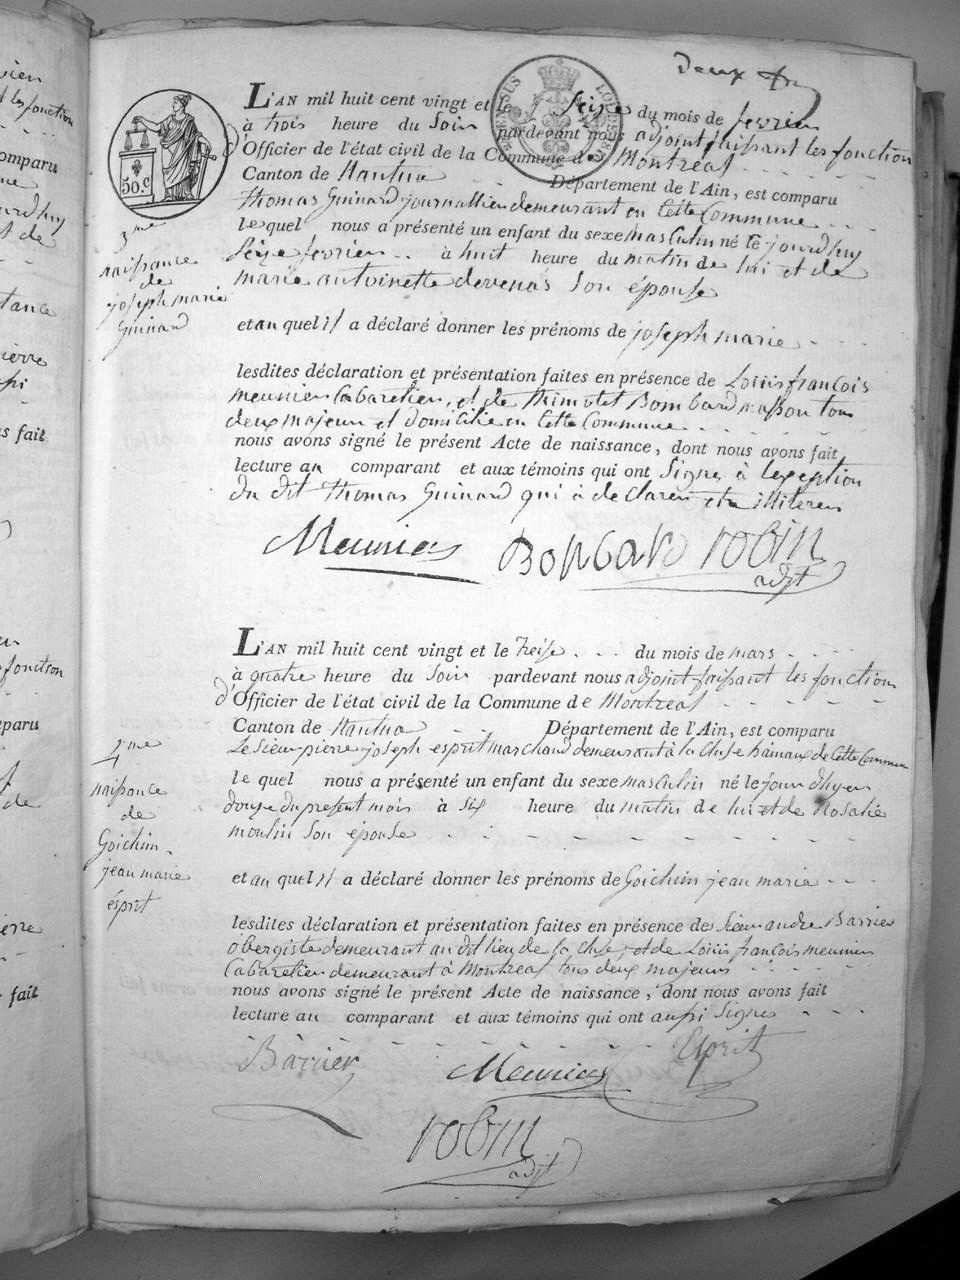 deux
L'AN mil huit cent vingt et le Seize du mois de fevrier
à trois heure du Soir pardevant nous adjoint faisant les fonction
d'Officier de l'état civil de la Commune de Montréal
Canton de Nantua Département de l'Ain, est comparu
thomas Guinard journallier demeurant en Cette Commune
le quel nous a présenté un enfant du sexe masculin né le jourdhuy
Seize fevrier à huit heure du matin de lui et de
marie antoinette devenas Son épouse
et au quel il a déclaré donner les prénoms de joseph marie
lesdites déclaration et présentation faites en présence de Loüis françois
meunier Cabaretier, et de thimotet Bombard masson tous
deux majeur et domicilié en Cette Commune
nous avons signé le présent Acte de naissance, dont nous avons fait
lecture au comparant et aux témoins qui ont Signe à lexception
du dit thomas Guinard qui à declarer etre illiteres
Meunier Bonbard robin
adjt
50.C
3me
naissance
de
joseph marie
Guinard
L'AN mil huit cent vingt et le treise du mois de mars
à quatre heure du Soir pardevant nous adjoint faissant les fonction
d'Officier de l'état civil de la Commune de Montréal
Canton de Nantua Département de l'Ain, est comparu
Le Sieur pierre joseph esprit marchand demeurant à la Cluse hameaux de Cette Commune
le quel nous a présenté un enfant du sexe masculin né le jour dhyer
douze du present mois à six heure du matin de lui et de Rosalie
moulin Son épouse
et au quel il a déclaré donner les prénoms de Goichim jean marie
lesdites déclaration et présentation faites en présence de Sieur andre Barrier
obergiste demeurant au dit lieu de la Cluse et de Loüis françois meunier
Cabaretier demeurant à Montreal tous deux majeurs
nous avons signé le présent Acte de naissance, dont nous avons fait
lecture au comparant et aux témoins qui ont aussi Signes
Barrier Meunier Esprit
robin
adjt
4me
naissance
de
Goichim
jean marie
esprit